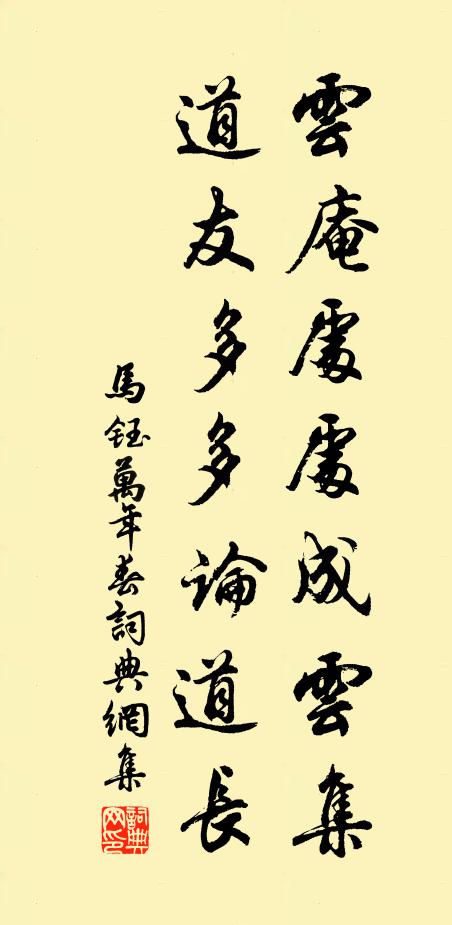 雲庵處處成雲集
道友多多論道長
馬鈺萬年春詞典網集
詞典網印